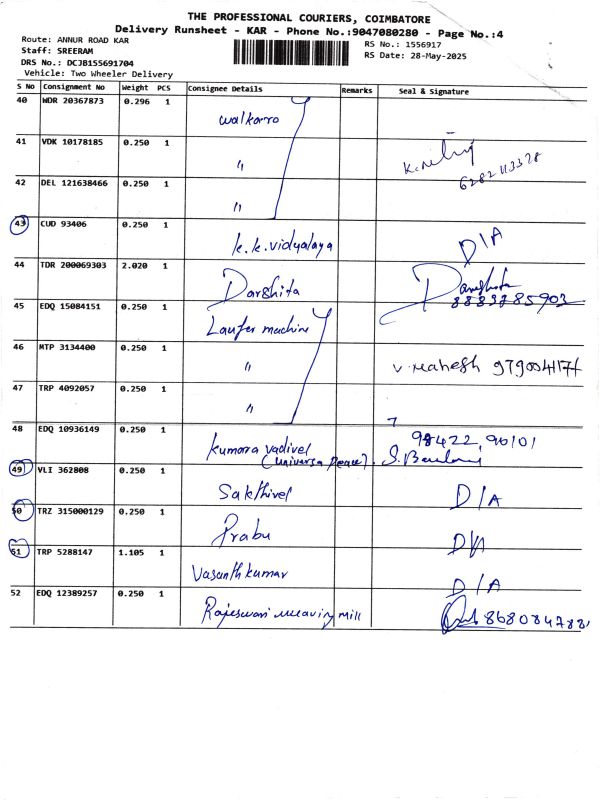 THE PROFESSIONAL COURIERS, COIMBATORE
Delivery Runsheet - KAR - Phone No.:9047080280 - Page No.:4
Route: ANNUR ROAD KAR
RS No.: 1556917
Staff: SREERAM
RS Date: 28-May-2025
DRS No.: DCJB155691704
Vehicle: Two Wheeler Delivery
S No Consignment No Weight PCS Consignee Details Remarks Seal & Signature
40 WDR 20367873 0.296 1 walkarro
41 VDK 10178185 0.250 1 "
42 DEL 121638466 0.250 1 "
43 CUD 93406 0.250 1 k.k.vidyalaya D/A
44 TDR 200069303 2.020 1 Darshita
45 EDQ 15084151 0.250 1 Laufer machine
46 MTP 3134400 0.250 1 " V. Mahesh
47 TRP 4092057 0.250 1 "
48 EDQ 10936149 0.250 1 kumora vadivel 98422,90101
49 VLI 362808 0.250 1 Sakthivel D/A
50 TRZ 315000129 0.250 1 Prabu D/A
51 TRP 5288147 1.105 1 Vasanthkumar D/A
52 EDQ 12389257 0.250 1 Rajeswari weaving mill